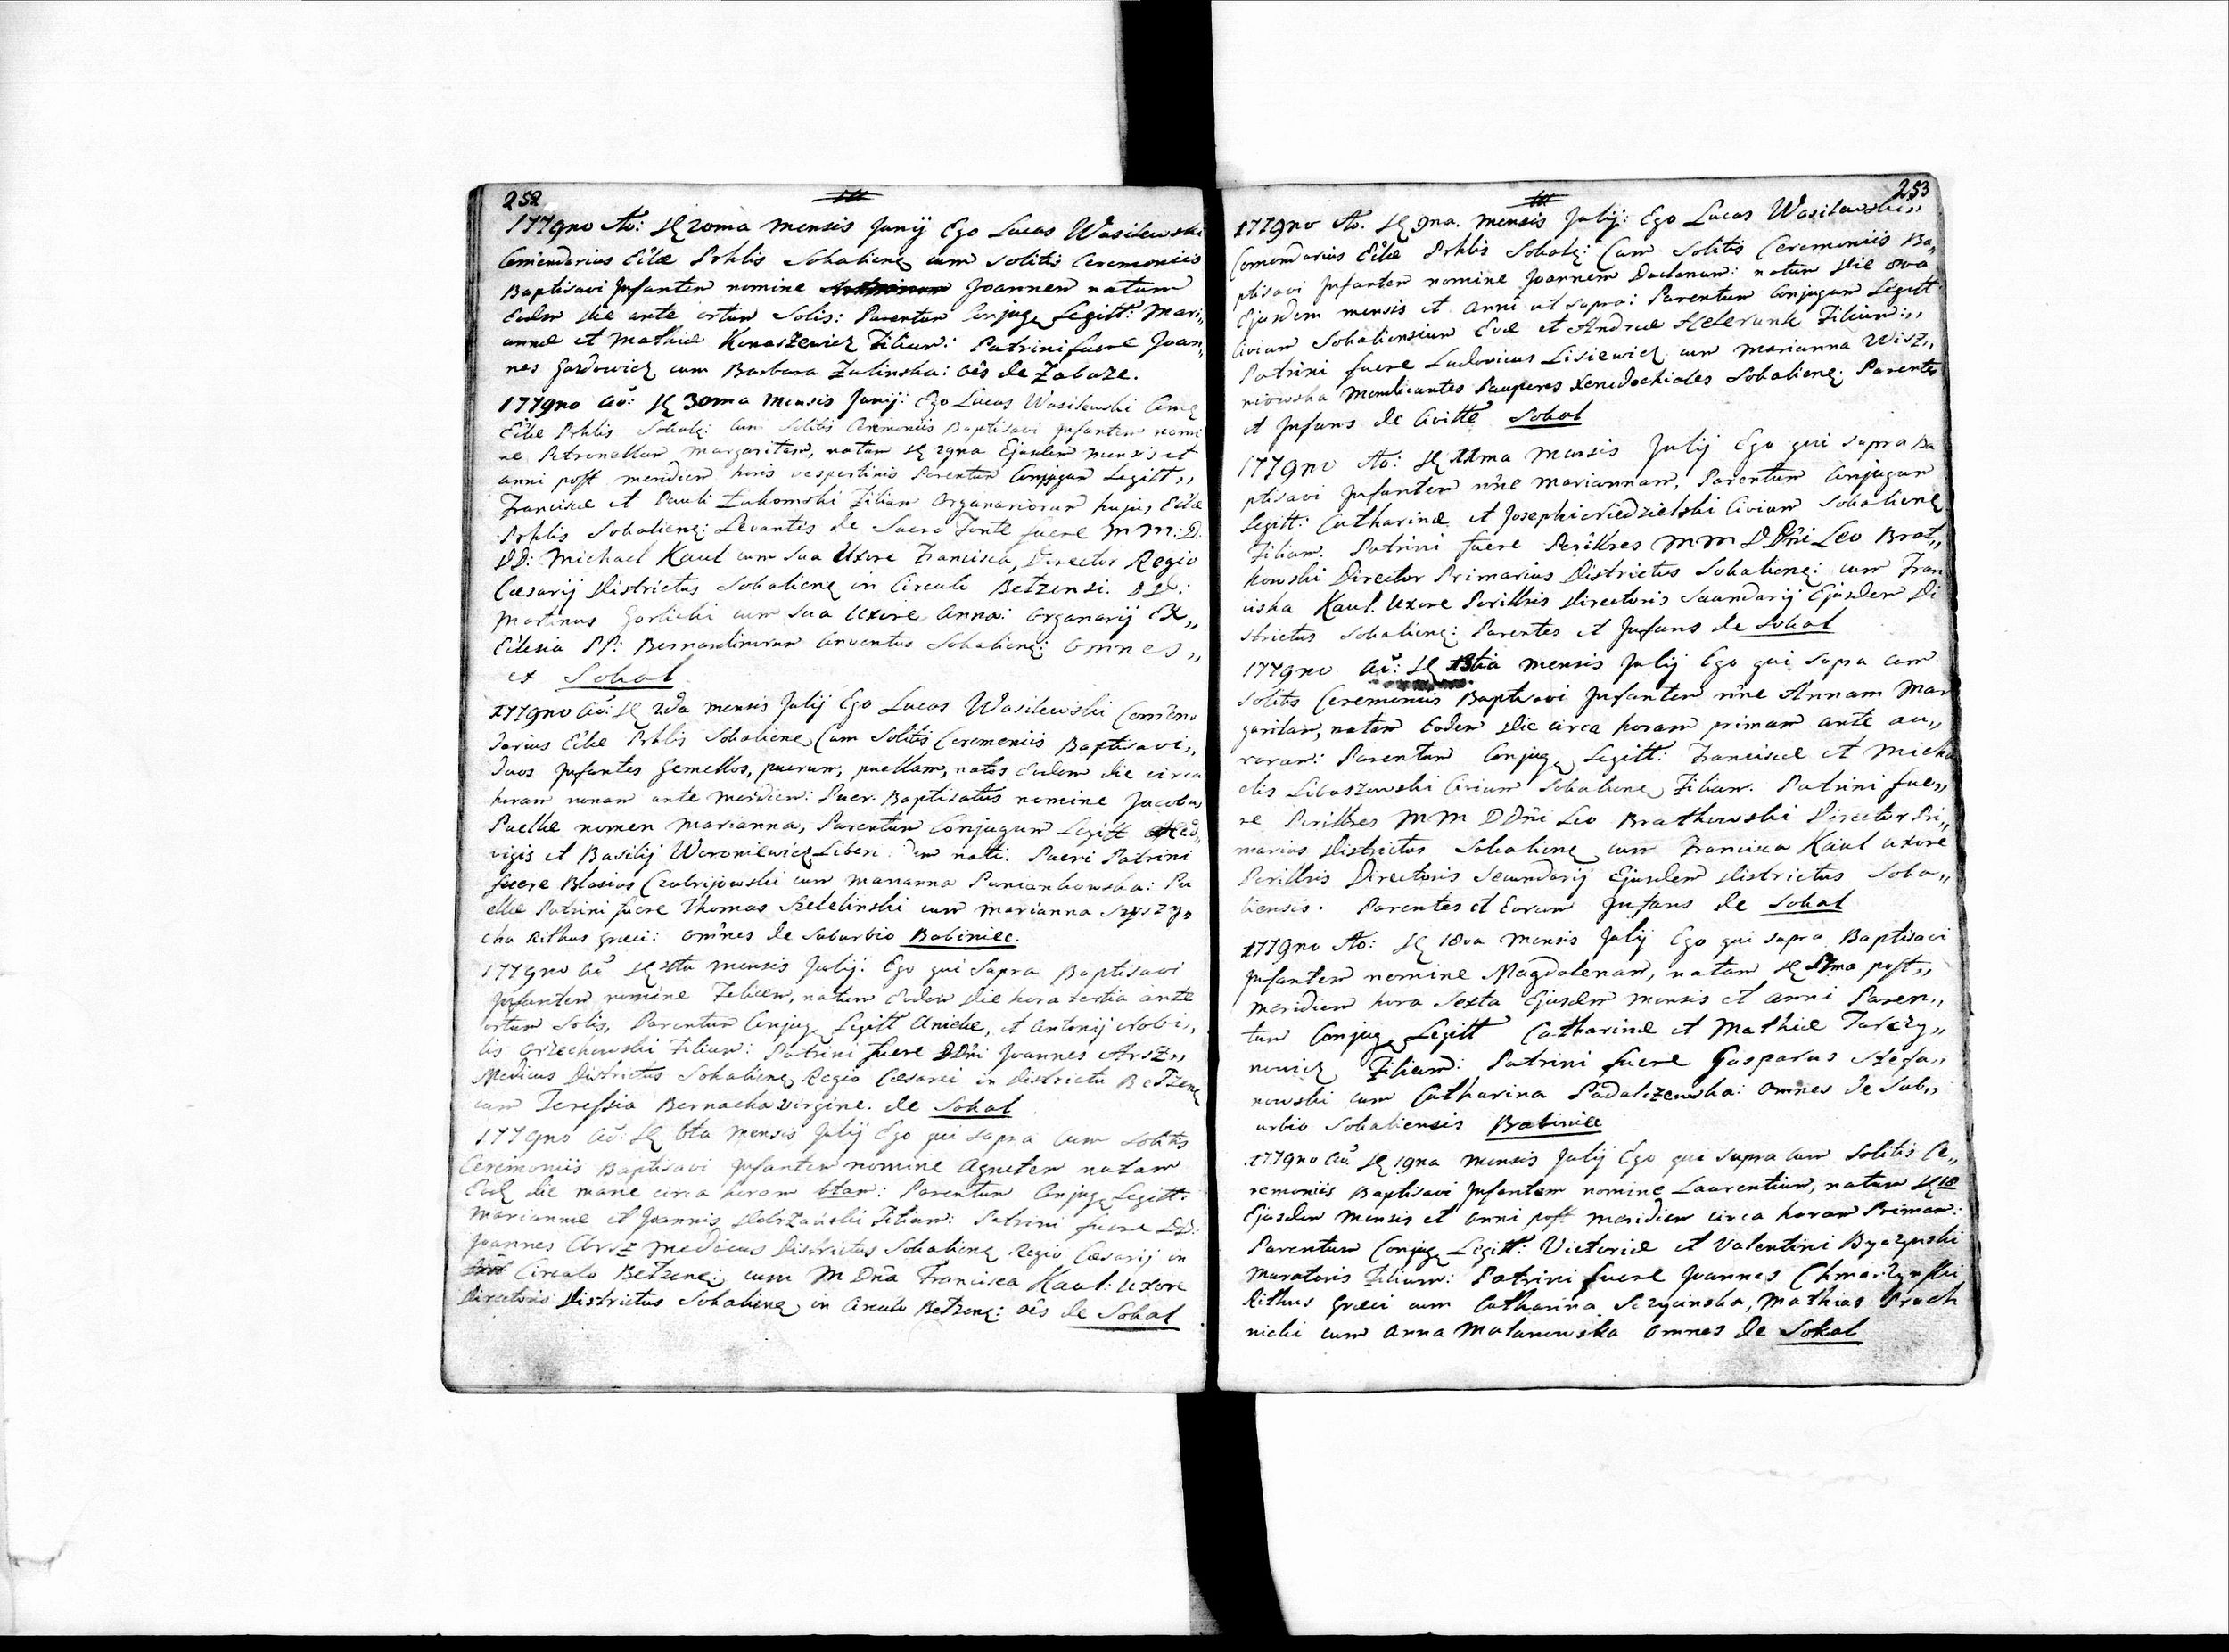 252
1779no Ao: d. 20ma mensis Junij Ego Lucas Wasilewski
Comendarius Eclae Prhlis Sokalienę cum solitis Ceremoniis
Baptisavi Infantem nomine Joannem natum
Eodem die ante ortum Solis: Parentum Conjugę Legitt: Mari„
annae et Mathiae Konaszewicz Filium: Patrini fuere Joan„
nes Gardowicz cum Barbara Zulinska: oes de Zabuze.
1779no Ao: d. 30ma Mensis Junij: Ego Lucas Wasilewski Comę
Eclae Prhlis Sokalę: Cum Solitis Ceremoniis Baptisavi Infantem nomi
ne Petronellam Margaritam, natam d. 29na Ejusdem mensis et
anni post meridiem horis vespertinis Parentum Conjugum Legitt„
Franciscae et Pauli Żukomski Filiam Organariorum hujus Eclae
Prhlis Sokalienę: Levantes de Sacro Fonte fuere MM: D.
DD: Michael Kaul cum sua Uxore Francisca, Director Regio
Caesarij Districtus Sokalienę in Circulo Betzensi. DD:
Martinus Gorlicki cum sua Uxore Anna: Organarij Ex„
Eclesia PP: Bernardinorum Conventus Sokalienę: omnes„
ex Sokal
1779no Ao: d. 2da mensis Julij Ego Lucas Wasilewski Comeno
darius Eclae Prhlis Sokalienę Cum Solitis Ceremoniis Baptisavi„
duos Infantes Gemellos, puerum, puellam, natos eodem die circa
horam nonam ante Meridiem: Puer. Baptisatus nomine Jacobus
Puellae nomen Marianna, Parentum Conjugum Legitt Hed„
vigis et Basilij Woroniewicz Liberi dem nati. Pueri Patrini
fuere Blasius Czubrijowski cum Marianna Puniankowska: Pu
ellae Patrini fuere Thomas Szelelinski cum Marianna Szyszy„
cha Rithus Graeci: omnes de Suburbio Babiniec.
1779no Ao d. 4ta mensis Julij: Ego qui Supra Baptisavi
Infantem nomine Felicem, natum Eodem die hora tertia ante
ortum Solis, Parentum Conjugę Legitt Anielae, et Antonij Nobi„
lis Orzechowski Filium: Patrini fuere DDni Joannes Arsz„
Medicus Districtus Sokalienę Regio Caesarei in districtu Betzenę
cum Teressia Bernacka virgine. de Sokal
1779no Ao: d. 6ta Mensis Julij Ego qui Supra Cum Solitis
Ceremoniis Baptisavi Infantem nomine Agnetem natam
Eodę die mane circa horam 6tam: Parentum Conjugę Legitt:
Mariannae et Joannis Dobrzański Filiam: Patrini fuere DD:
Joannes Arsz Medicus Districtus Sokalienę Regio Caesarij in
Circulo Betzenę: cum M Dna Francisca Kaul: Uxore
Directoris Districtus Sokalienę in Circulo Betzenę: oes de Sokal
253
1779no Ao. d. 9na. Mensis Julij: Ego Lucas Wasilewski„
Comendarius Eclae Prhlis Sokalę: Cum Solitis Ceremoniis Ba„
ptisavi Infantem nomine Joannem Dualanum: natum die 8va
Ejusdem mensis et anni ut Supra: Parentum Conjugum Legitt:
Civium Sokaliensium Evae et Andreae Helerunk Filium:„
Patrini fuere Ludovicus Lisiewicz cum Marianna Wisz„
niowska Mendicantes Pauperes Xenodochiales Sokalienę: Parentes
et Infans de Civitte Sokal
1779no Ao: d. 11ma Mensis Julij Ego qui Supra Ba
ptisavi Infantem nne Mariannam, Parentum Conjugum
Legitt: Catharinae et Josephi Niedzielski Civium Sokalienę
Filiam. Patrini fuere Perillres MM DDni Leo Brat„
kowski Director Primarius Districtus Sokalienę: cum Fran
ciska Kaul. Uxore Perillris Directoris Secundarij Ejusdem Di
strictus Sokalienę: Parentes et Infans de Sokal
1779no Ao: d. 13tia Mensis Julij Ego qui Supra cum
Solitis Ceremoniis Baptisavi Infantem nne Annam Mar
garitam, natam Eodem die circa horam primam ante au„
roram: Parentum Conjugę Legitt: Franciscae et Micha
elis Libaszowski Civium Sokalienę Filiam. Patrini fue„
re Perillres MM DDni Leo Bratkowski Director Pri„
marius Districtus Sokalienę cum Francisca Kaul uxore
Perillris Directoris Secundarij Ejusdem Districtus Soka„
liensis. Parentes et Eorum Infans de Sokal
1779no Ao: d. 18va Mensis Julij Ego qui Supra Baptisavi
Infantem nomine Magdalenam, natam d. 17ma post„
meridiem hora Sexta Ejusdem mensis et anni Paren„
tum Conjugę Legitt Catharinae et Mathiae Tarczy„
nowicz Filiam: Patrini fuere Gasparus Stefa„
nowski cum Catharina Padalczewska: omnes de Sub„
urbio Sokaliensis Babiniec
1779no Ao. d. 19na Mensis Julij Ego qui supra cum Solitis Ce„
remoniis Baptisavi Infantem nomine Laurentium, natum d. 18
Ejusdem Mensis et anni post meridiem circa horam Primam:
Parentum Conjugę Legitt: Victoriae et Valentini Byczynski
Muratoris Filium: Patrini fuere Joannes Chmarzynski
Rithus Graeci cum Catharina Sczycinska, Mathias Proch
nicki cum Anna Malanowska omnes de Sokal